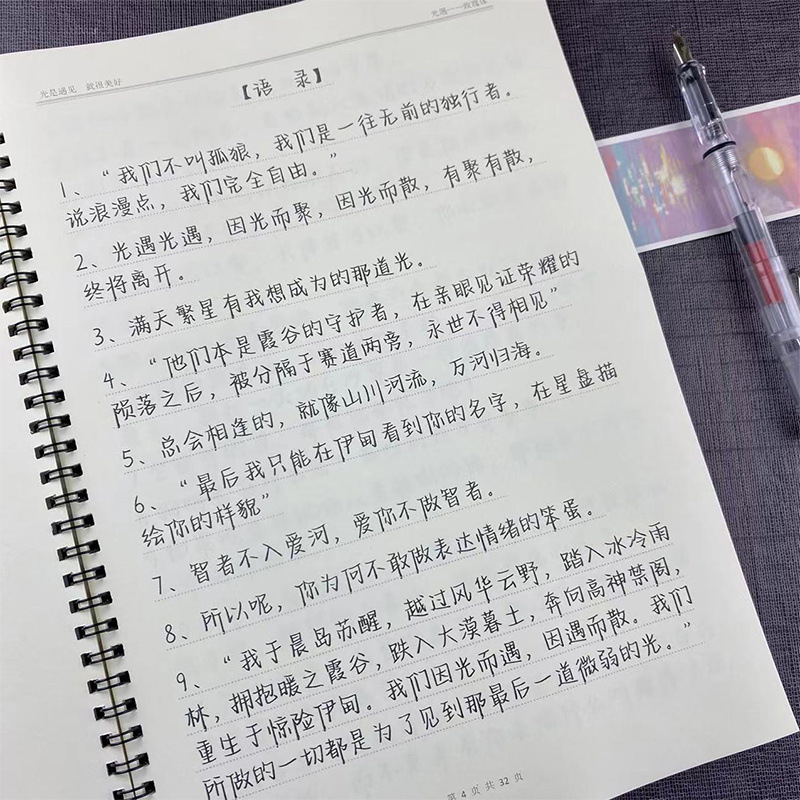 光是遇见 就很美好
光遇——玫瑰谷
【语 录】
1、“我们不叫孤狼，我们是一往无前的独行者。
说浪漫点，我们完全自由。”
2、光遇光遇，因光而聚，因光而散，有聚有散，
终将离开。
3、满天繁星有我想成为的那道光。
4、“他们本是霞谷的守护者，在亲眼见证荣耀的
陨落之后，被分隔于赛道两旁，永世不得相见”
5、总会相逢的，就像山川河流，万河归海。
6、“最后我只能在伊甸看到你的名字，在星盘描
绘你的样貌”
7、智者不入爱河，爱你不做智者。
8、所以呢，你为何不敢做表达情绪的笨蛋。
9、“我于晨岛苏醒，越过风华云野，踏入冰冷雨
林，拥抱暖之霞谷，跌入大漠暮土，奔向高神禁阁，
重生于惊险伊甸。我们因光而遇，因遇而散。我们
所做的一切都是为了见到那最后一道微弱的光。”
第 4 页 共 32 页